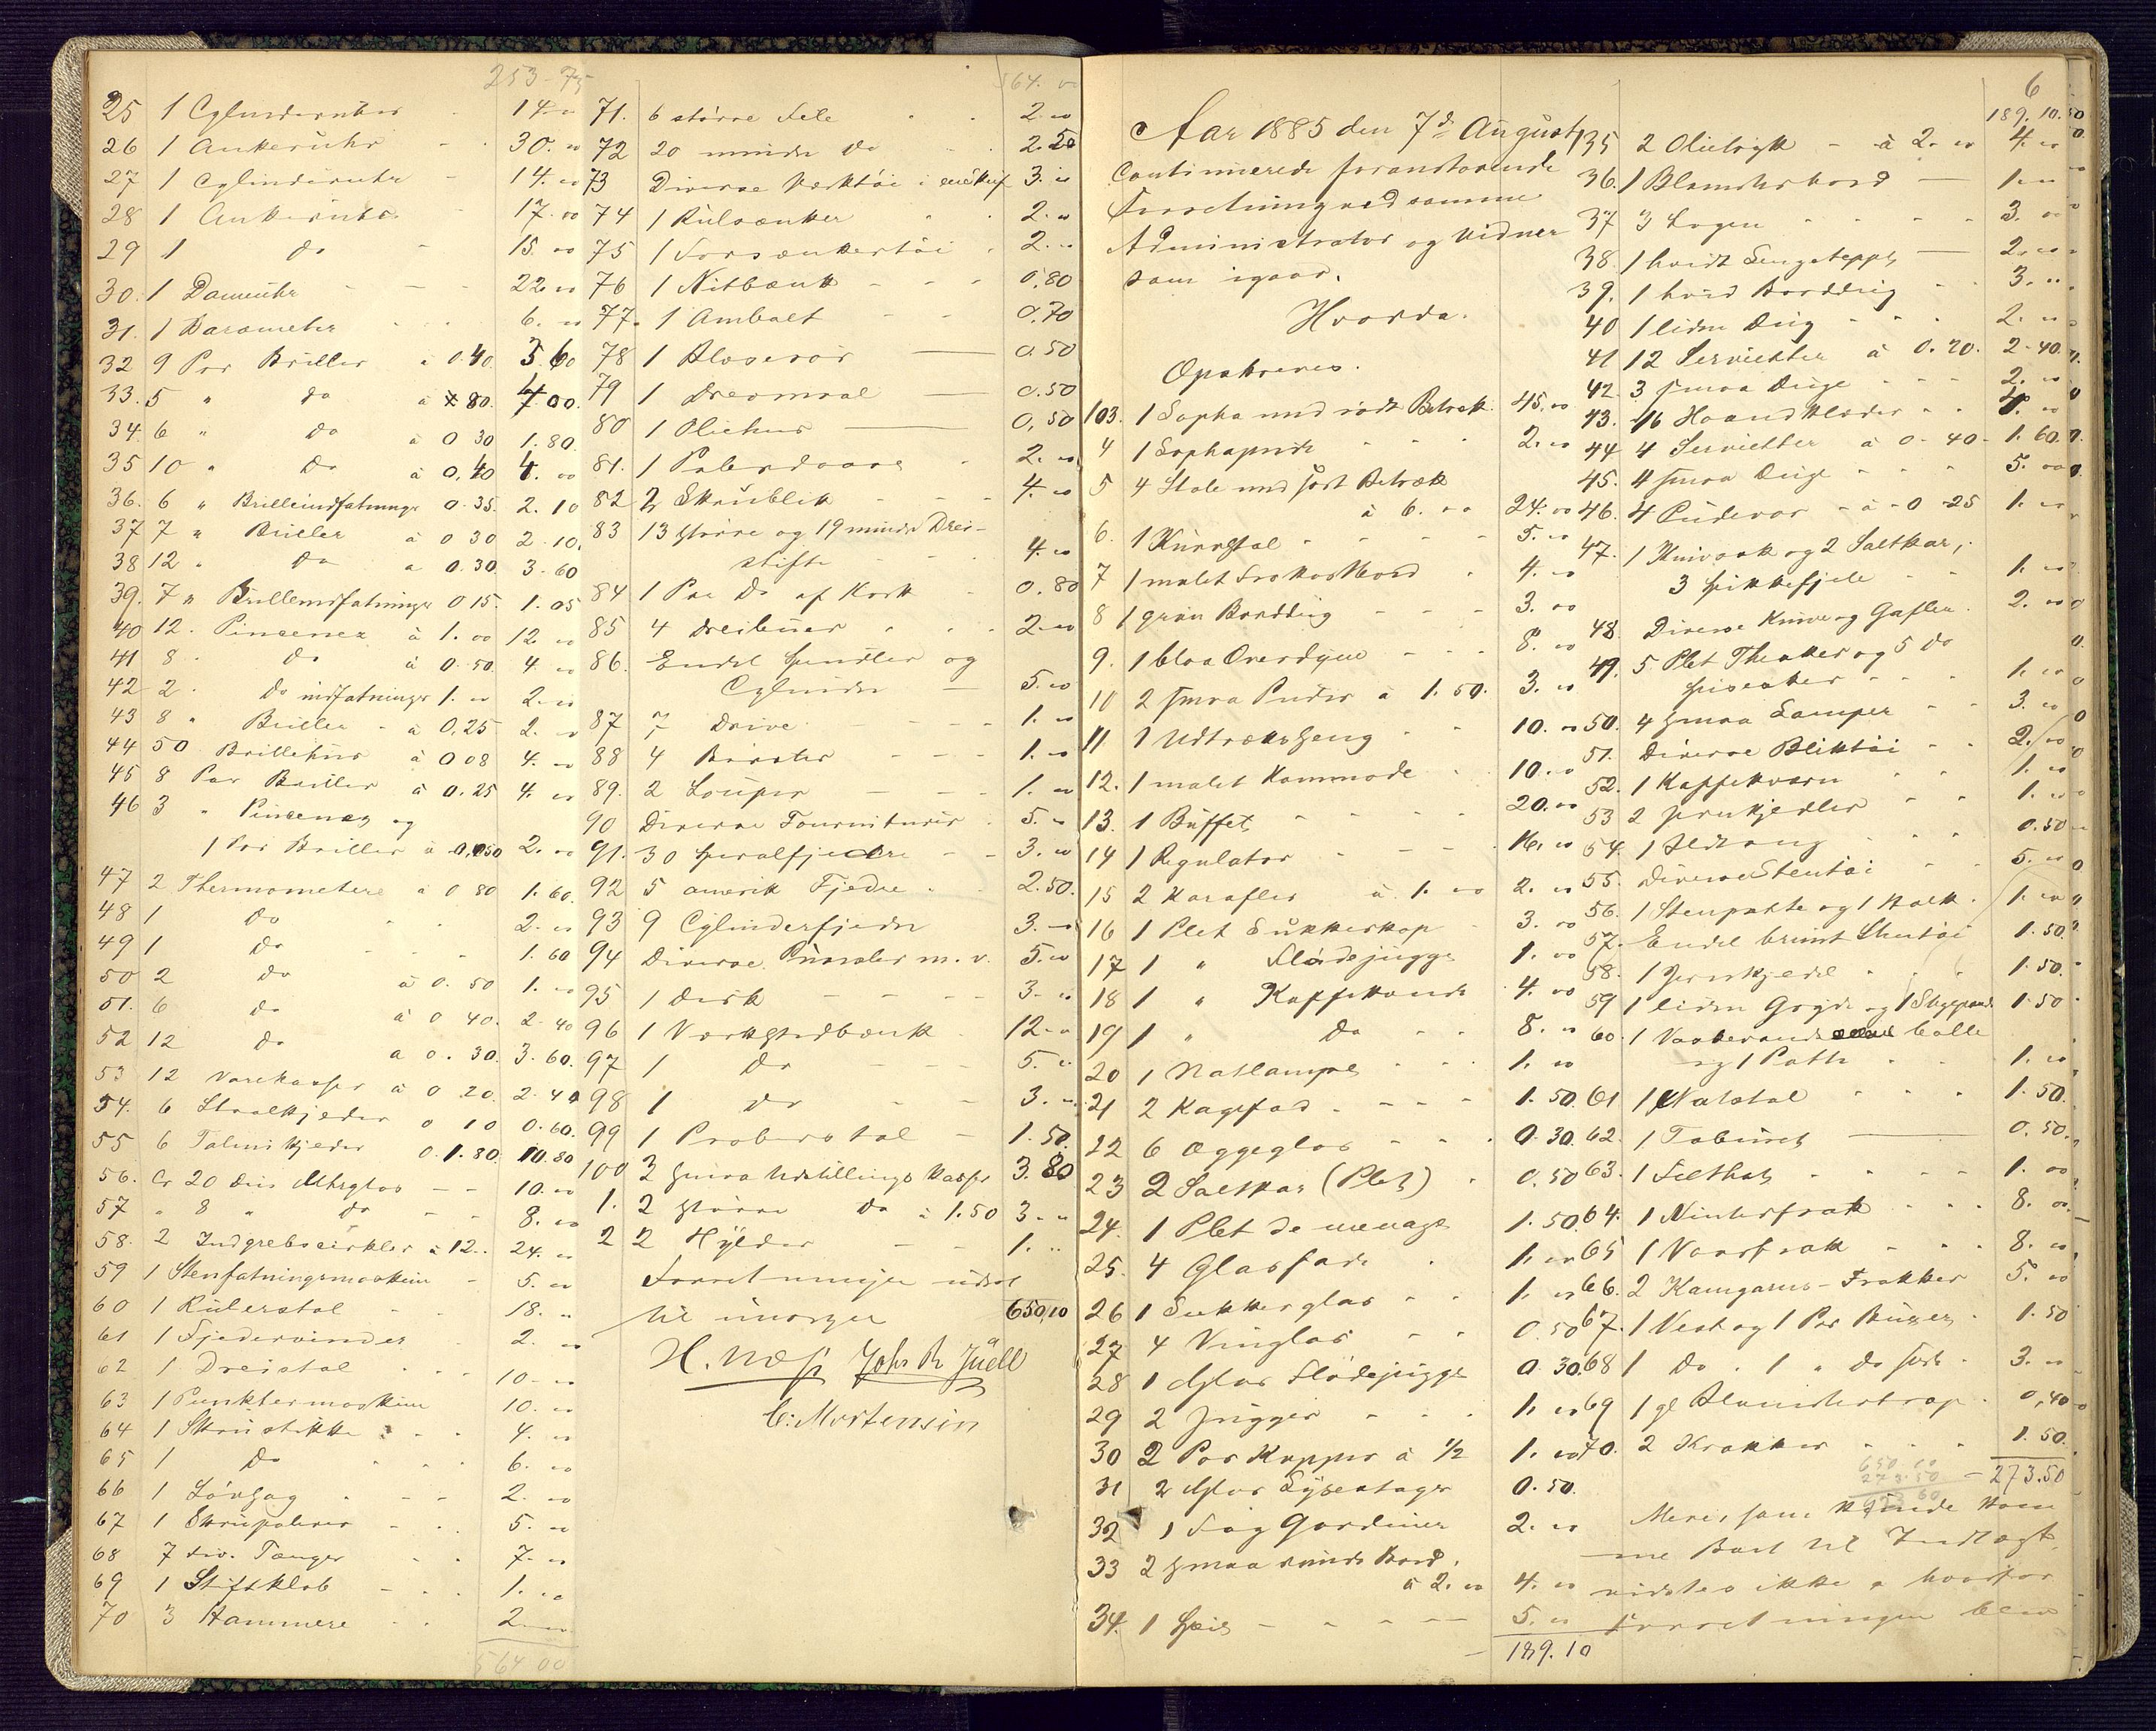 253-75
25 1 Cylinderuhr - 14.00
26 1 Ankeruhr - - 30.00
27 1 Cylinderuhr - 14.00
28 1 Ankeruhr - 17.00
29 1 do - 15.00
30. 1 Dameuhr - - - 22.00
31. 1 Barometer - - - 6.00
32 9 Par Briller à 0.40. 3.60
33. 5 " do à 80. 4.00.
34. 6 " do à 0 30 1.80.
35 10 " do à 0,40 4.00
36. 6 " Brilleindfatninger 0.35. 2.10
37 7 " Briller à 0 30 2.10.
38 12 " do à 0.30. 3.60
39. 7 " Brilleindfatninger 0 15. 1.05
40 12. Pincenez à 1.00 12.00
41 8 " do à 0.50. 4.00
42 2 " do indfatninger 1.00 2.00
43 8 " Briller - à 0,25 2.00
44 50 Brillehus à 0 08 4.00
45 8 Par Briller à 0.25 4.00
46 3 " Pincenez og
1 Par Briller à 0,50 2.00
47 2 Thermometere à 0 80 1.60.
48 1 do - - 2.00
49 1 do - - - 1.60
50 2 do à 0.50 1.00
51. 6 do à 0 40. 2.40
52 12 do a 0.30. 3.60.
53 12 Varekasser à 0 20. 2.40
54. 6 Staalkjeder 0 10 0.60.
55 6 Talmikjeder 0.1.80. 10.80
56. Cr 20 Dus Uhrglas - - 10.00
57 " 8 " do - - 8.00
58. 2 Indgrebscirkler à 12.. 24.00
59 1 Stenfatningsmaskine - 5.00
60 1 Rulerstol - - 18. "
61 1 Fjedervinder - 2.00
62 1 Dreistol - - - 10.00
63 1 Punktermaskine 10.00
64 1 Skrustikke - - - 4.00
65 1 do - - - 6.00
66 1 Løvsag - - - 2.00
67 1 Skrupolerer - - - 5.00
68 7 div. Tænger - - 7.00
69 1 Stiftklob - - - 1.00
70 3 Hammere - - 2.00
564 00
564.00
71. 6 større File - - 2.00
72 20 mindre do - - 2.50
73 Diverse Værktøi i en Skuf 3.00
74 1 Rulsænker - - 2.00
75 1 Forsænkertøi - 2.00
76 1 Nitbænk - - - 0.80
77. 1 Ambolt - - 0.70
78 1 Blæserør - 0.50
79 1 Dreomaal - 0.50
80 1 Oliehus - 0,50
81. 1 Polerdaase - 2.00
82 2 Skrublik - - - 4.00
83 13 større og 19 mindre Drei-
stifte - - 4.00
84 1 Par do af Kork - 0.80
85 4 Dreibuer - - - 2.00
86. Endel Spindler og
Cylindre - 5.00
87 7 Drive - - - 1.00
88 4 Børster - - - 1.00
89. 2 Louper - - - 1.00
90 Diverse Fourniturer - 5.00
91. 30 Spiralfjedre - - 3.00
92 5 amerik Fjedre - - 2.50.
93 9 Cylinderfjedre 3.00
94 Diverse Pinsler m. v. 5.00
95 1 Disk - - - - 3.00
96 1 Værkstedbænk 12.00
97 1 do - - - 5.00
98 1 do - - 3.00
99 1 Proberstol - 1.50.
100 2 smaa Udstillings Kasser 3.80
1. 2 større do à 1.50 3.00
2 2 Hylder - - 1. "
Forretningen udsat
til imorgen 650,10
H. Næss Johs R Juell
C: Mortensen
6
Aar 1885 den 7de August
Continuerede foranstaaende
Forretning ved samme
Administrator og Vidner
som igaar.
Hvorda
Opskreves.
103. 1 Sopha med rødt Betræk. 45.00
4 1 Sophapude - - - - 2.00
5 4 Stole med sort Betræk
à 6.00 24.00
6. 1 Kurvstol - - - - 5.00
7 1 malet Frokostbord - 4.00
8 1 grøn Borddug - - - 3.00
9. 1 blaa Overdyne - - - 8.00
10 2 smaa Puder à 1.50. 3.00
11 1 Udtrækseng - - 10.00
12. 1 malet Kommode - 10.00
13. 1 Buffet - - - - 20.00
14 1 Regulator - - - - 16.00
15 2 Karafler à 1.00 2.00
16 1 Plet Sukkerkop - 3.00
17 1 " Flødejugge 1.00
18 1 " Kaffekande 4.00
19 1 " do - - 8.00
20 1 Natlampe - - - 1.00
21 2 Kagefad - - - - 1.50.
22 6 Æggeglas - - - 0.30.
23 2 Saltkar (Plet) - 0.50
24. 1 Plet de menage 1.50.
25. 4 Glasfade - 1.00
26 1 Sukkerglas - - 1.00
27 4 Vinglas - - 0.50
28 1 Glas Flødejugge 0.30.
29 2 Jugger - - - 1.00
30 2 Par Kopper à 1/2 1.00
31 2 Glas Lysestager 0.50.
32 1 Fag Gardiner 2.00
33 2 smaa runde Bord.
à 2.00 4.00
34. 1 Speil - - - - 5.00
189.10
189.10.
35 2 Olietryk - à 2.00 4.00
36. 1 Blomsterbord - 1.00
37 3 Lagen - - - - 3.00
38. 1 hvidt Sengeteppe - 2.00
39. 1 hvid Borddug - - 3.00
40 1 liden Dug - - - 2.00
41 12 Servietter à 0.20. 2.40.
42. 3 smaa Duge - - - 2.00
43. 16 Haandklæder - - 4.00
44 4 Servietter à 0.40 - 1.60.
45. 4 smaa Duge - - - 5.00
46. 4 Pudevar - à - 0 25 1.00
47. 1 Knivbak og 2 Saltkar,
3 Spikkefjele - - 1.00
48. Diverse Knive og Gafler. 2.00
49. 5 Plet Theskeer og 5 do
Spiseskeer - - - 1.00
50. 4 smaa Lamper - - 3.00
51. Diverse Bliktøi - - 2.00
52. 1 Kaffekværn - - 1.00
53 2 Jernkjedler - - 1.00
54. 1 Ildtang - - - 0.50
55. Diverse Stentøi - - 5.00
56. 1 Stenpotte og 1 Balk. 1.00
57. Endel brunt Stentøi 1.50.
58. 1 Jernkjedel - - - 1.50.
59 1 liden Gryde og 1 Stegepande 1.50
60. 1 Vaskevands balle
og 1 Potte - - 1.00
61 1 Natstol - - - 1.50.
62. 1 Taburet - 0.50.
63. 1 Filthat - - - - 1.00
64. 1 Vinterfrak - - - 8.00
65 1 Vaarfrak - - - 8.00
66. 2 Kamgarns-Frakker 5.00
67. 1 Vest og 1 Par Buxer - 1.50
68 1 do. 1 " do sort - 3.00
69 1 gl Blomstertrap - 0,40
70. 2 Krakker - - - - 1.50.
650 10
273.50
923 60
- 273.50
Mere, som kunde kom
me Boet til Indtægt,
vidstes ikke, hvorfor
Forretningen blev